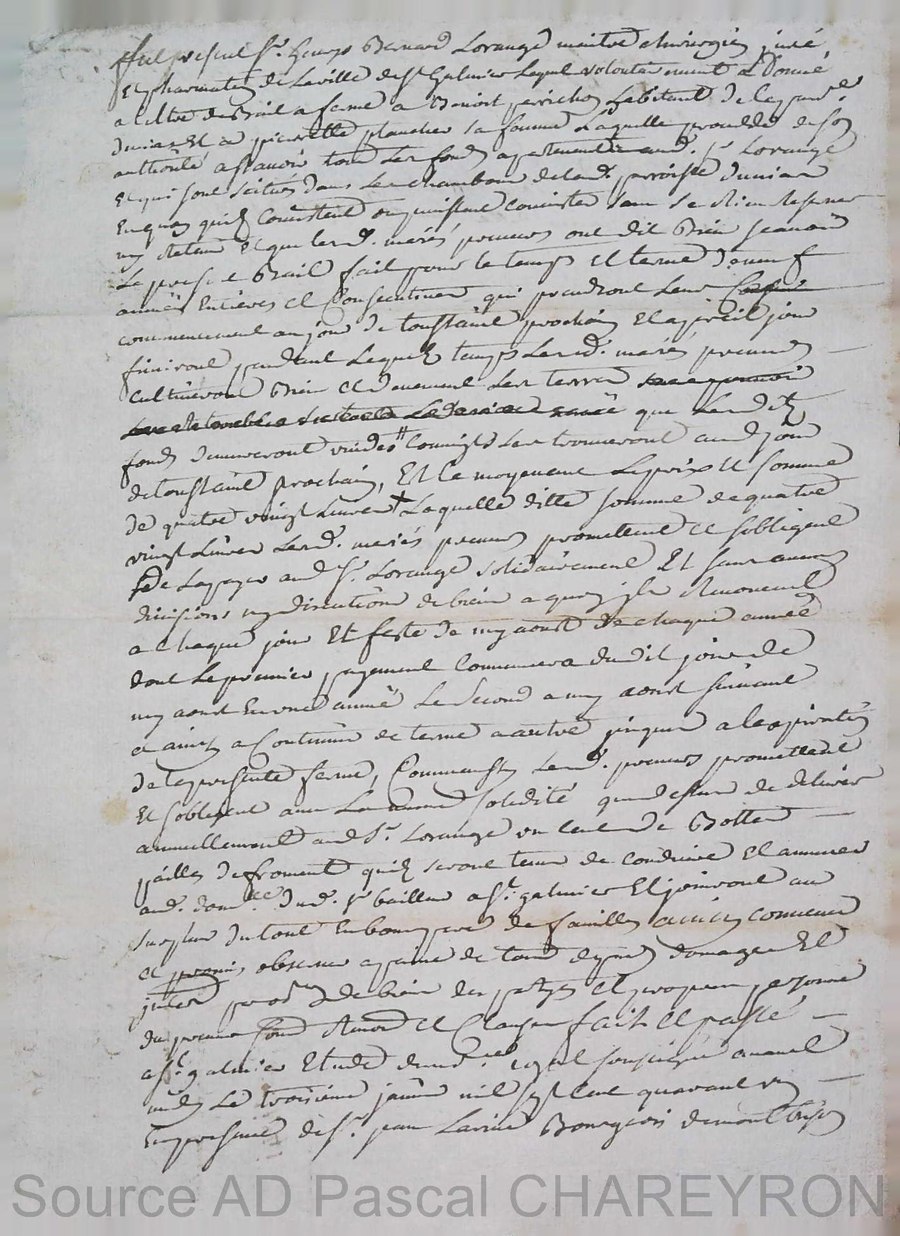 fut present Sr. George Bernard Lorange maitre chirurgien juré
Et pharmatien de la ville de St Galmier Lequel volontairement a Donné
a tiltre de Bail a ferme a Benoist perrichon habitant de la parsse
Duniaz Et a pierrette planchet sa femme Laquelle procedde de son
authorité a scavoir tous les fonds apartenents aud. Sr Lorange
Et qui sont scitués dans Le chambon de lad. parroisse Dunias
En quoy quils Consistent ou puissent Consister sans se Rien Reserver
ny Retenir Et que lesd. mariés preneurs ont dit Bien scavoir
Le present Bail fait pour le temps Et terme de neuf
années Entieres Et Consecutives qui prendront leur
commencement au jour de toussaint prochain Et a pareil jour
finiront pendant Lequel temps Lesd. mariés preneurs
Cultiveront Bien Et duement Les terres
que Lesdits
fonds demeureront vuides Comme ils Les trouveront aud. jour
de toussaint prochain, Et ce moyenant Le prix Et somme
de quatre vingt Livres + Laquelle ditte somme de quatre
vingt Livres Lesd. mariés preneurs promettent Et sobligent
de La payer aud Sr. Lorange solidairement Et sans aucune
division ny discution de biens a quoy ils Renoncent
a chaque jour Et feste de my aoust de chaque année
dont Le premier payement Commencera dudit jour de
my aoust En une année Le second a my aoust suivant
Et ainsy a Continuer de terme a autre jusques a lexpiration
de la presente ferme, Comme aussy Lesd. preneurs promettent
Et sobligent avec La meme solidité que dessus de delivrer
annuellement aud Sr. Lorange un Cent de Bottes
pailles de froment quils seront tenus de conduire Et amener
aud. domlle dud. Sr bailleur a St. galmier Et jouiront au
surplus du tout En bons peres de familles ainsy convenu
Et promis observer a peine de tous depens domages Et
de biens des parties
du preneur Renon. Et Clauses fait Et passé
a St. galmier Etude du no.re royal soussigné avant
midy Le troisieme janvier mil sept cent quarante un
En presence de Sr. jean Bourgeois de montbrison
Source AD Pascal CHAREYRON